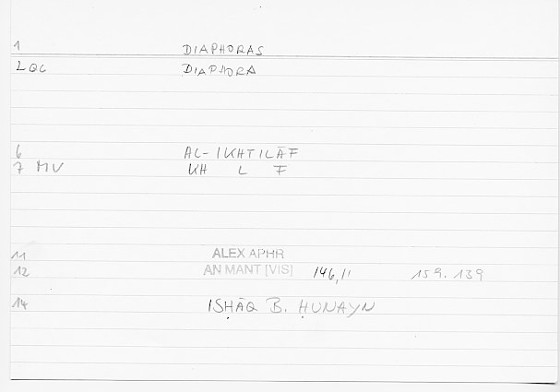 1 DIAPHORAS
2 QC DIAPHORA
6 AL-IKHTILĀF
7 MV KH L F
11 ALEX APHR
12 AN MANT [VIS] 146,11 159.139
14 ISḤĀQ B. ḤUNAYN